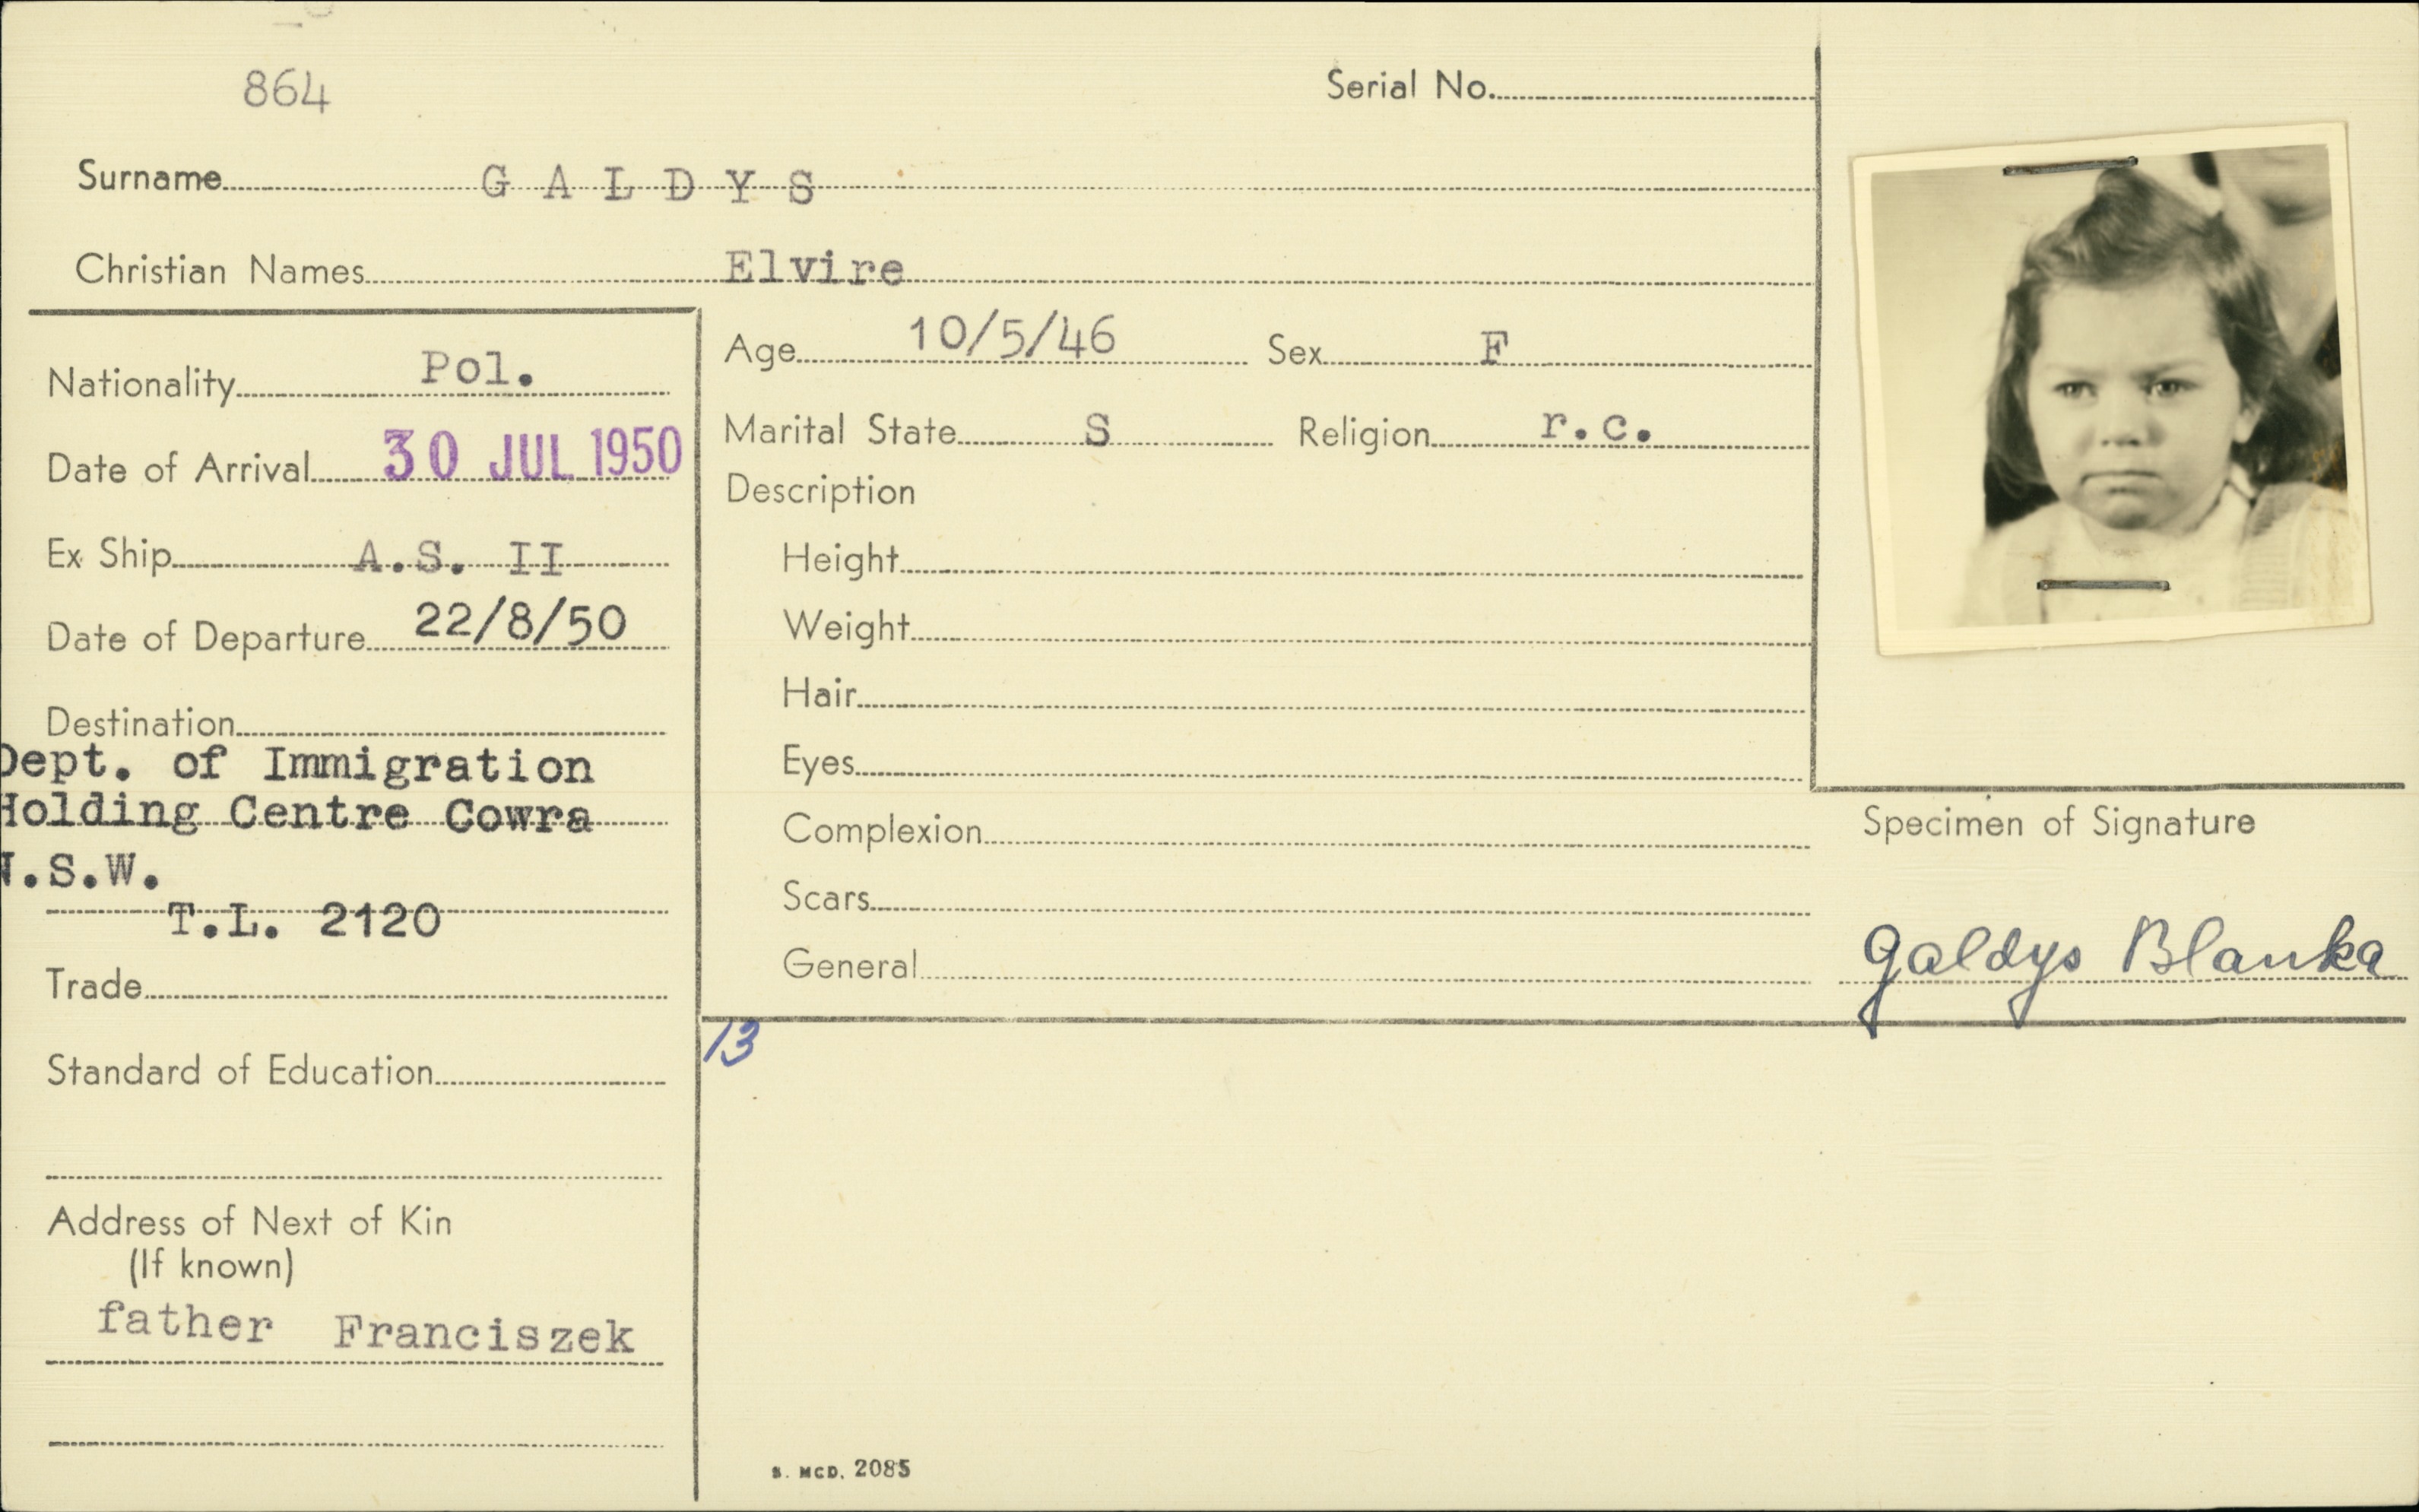 864
Serial No.
Surname GALDYS
Christian Names Elvire
Nationality Pol.
Date of Arrival 30 JUL 1950
Ex Ship A.S. II
Date of Departure 22/8/50
Destination
Dept. of Immigration
Holding Centre Cowra
N.S.W.
T.L. 2120
Trade
Standard of Education
Address of Next of Kin
(If known)
father Franciszek
Age 10/5/46 Sex F
Marital State S Religion r.c.
Description
Height
Weight
Hair
Eyes
Complexion
Scars
General
Specimen of Signature
Galdys Blanka
13
S. MCD. 2085